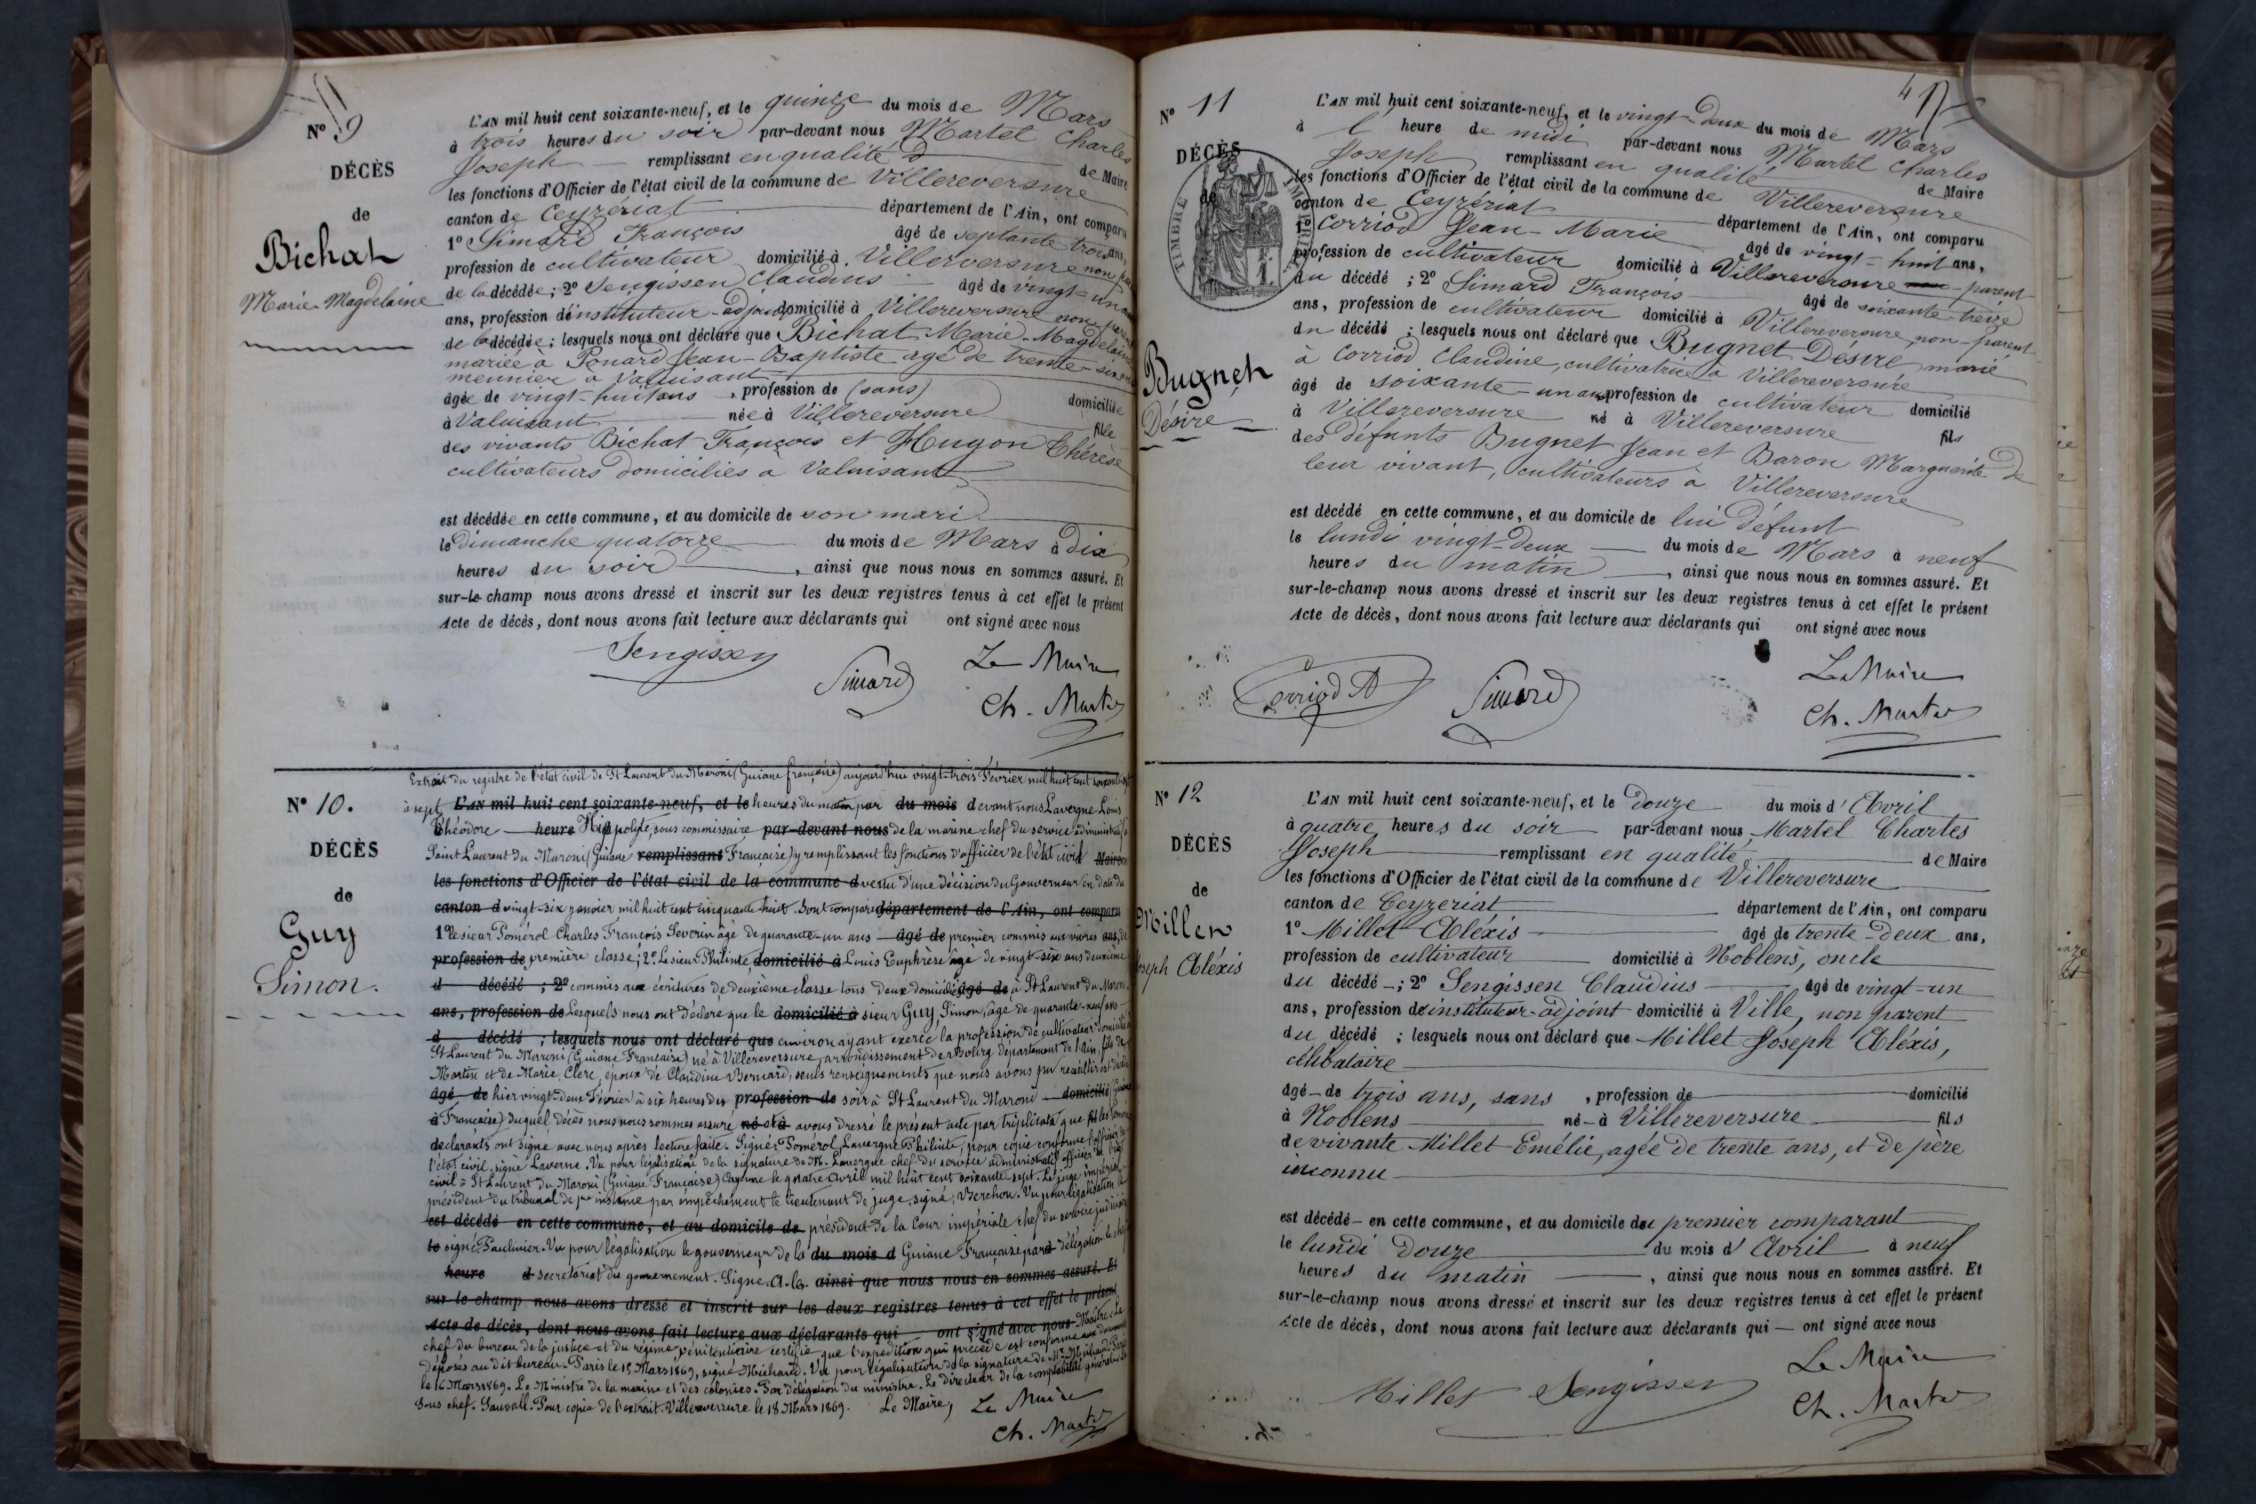 N° 9
DÉCÈS
de
Bichat
Marie-Magdelaine
L'AN mil huit cent soixante-neuf, et le quinze du mois de Mars
à trois heures du soir par-devant nous Martel Charles
Joseph remplissant en qualité de Maire
les fonctions d'Officier de l'état civil de la commune de Villereversure
canton de Ceyzériat département de l'Ain, ont comparu
1° Simard François âgé de septante trois ans,
profession de cultivateur domicilié à Villereversure non
de la décédée; 2° Sengissen Claudius âgé de vingt-un
ans, profession d'instituteur-adjoint domicilié à Villereversure non
de la décédée; lesquels nous ont déclaré que Bichat Marie-Magdelaine
mariée à Penard Jean-Baptiste agé de trente-six
meunier à Valuisant
âgée de vingt-huit ans, profession de (sans) domiciliée
à Valuisant née à Villereversure fille
des vivants Bichat François et Hugon Thérèse
cultivateurs domiciliés à Valuisant
est décédée en cette commune, et au domicile de son mari
le dimanche quatorze du mois de Mars à dix
heures du soir, ainsi que nous nous en sommes assuré. Et
sur-le-champ nous avons dressé et inscrit sur les deux registres tenus à cet effet le présent
Acte de décès, dont nous avons fait lecture aux déclarants qui ont signé avec nous
Sengissen Simard Le Maire
Ch. Martel
N° 10.
DÉCÈS
de
Guy
Simon.
Extrait du registre de l'état civil de St Laurent du Maroni (Guiane française) aujourd'hui vingt-trois Février mil huit cent
à sept L'AN mil huit cent soixante-neuf, et le heures du matin par du mois devant nous Lavergne Louis
Théodore heure Hippolyte, sous commissaire par-devant nous de la marine chef du service
Saint Laurent du Maroni (Guiane remplissant Française) y remplissant les fonctions d'officier de l'état civil Maire
les fonctions d'Officier de l'état civil de la commune d vertu d'une décision du Gouverneur en date du
canton d vingt-six janvier mil huit cent cinquante huit. Sont comparu département de l'Ain, ont comparu
1° le sieur Pomérol Charles François Severin âgé de quarante-un ans âgé de premier commis aux vivres ans,
profession de première classe; 2° Le sieur Philinte domicilié à Louis Euphrèse âgé de vingt-six ans deuxième
d décédé; 2° commis aux écritures de deuxième classe tous deux domiciliés âgé de à St Laurent du Maroni
ans, profession de Lesquels nous ont déclaré que le domicilié à sieur Guy Simon, âgé de quarante-neuf ans
d décédé; lesquels nous ont déclaré que environ ayant exercé la profession de cultivateur
St Laurent du Maroni (Guiane Française) né à Villereversure, arrondissement de Bourg département de l'Ain, fils de
Martin et de Marie Clerc, époux de Claudine Bernard, seuls renseignements que nous avons pu recueillir est
âgé de hier vingt-deux Février à six heures du profession de soir à St Laurent du Maroni domicilié
à Française) duquel décès nous nous sommes assuré né et à avons dressé le présent acte par triplicata que fil les
déclarants ont signé avec nous après lecture faite. Signé: Pomérol, Lavergne, Philinte, pour copie conforme l'officier de
l'état civil, signé Laverne. Vu pour légalisation de la signature de M. Lavergne chef du service administratif officier de l'état
civil à St Laurent du Maroni (Guiane Française) Cayenne le quatre Avril mil huit cent soixante sept. Le juge impérial
président du tribunal de 1ère instance par empêchement le lieutenant de juge, signé, Berchon. Vu pour légalisation
est décédé en cette commune, et au domicile de président de la Cour impériale chef du service judiciaire
le signé: Vu pour légalisation le gouverneur de la du mois d Guiane Française par à délégation le chef
heure d secrétariat du gouvernement. Signé ainsi que nous nous en sommes assuré. Et
sur-le-champ nous avons dressé et inscrit sur les deux registres tenus à cet effet le présent
Acte de décès, dont nous avons fait lecture aux déclarants qui ont signé avec nous
chef du bureau de la justice et du régime pénitentiaire certifie que l'expédition qui précède est conforme
déposés au dit bureau. Paris le 15 Mars 1869, signé Michaud. Vu pour légalisation de la signature de Mr Michaud
le 16 Mars 1869. Le Ministre de la marine et des colonies. Par délégation du ministre. Le directeur de la comptabilité générale
Sous chef. Sauvall. Pour copie de l'extrait. Villereversure le 18 Mars 1869. Le Maire, Le Maire
Ch. Martel
N° 11
DÉCÈS
de
TIMBRE
Bugnet
Désiré
L'AN mil huit cent soixante-neuf, et le vingt-deux du mois de Mars
à l' heure de midi par-devant nous Martel Charles
Joseph remplissant en qualité de Maire
les fonctions d'Officier de l'état civil de la commune de Villereversure
canton de Ceyzériat département de l'Ain, ont comparu
1° Corriod Jean-Marie âgé de vingt-huit ans,
profession de cultivateur domicilié à Villereversure parent
du décédé; 2° Simard François âgé de soixante-treize
ans, profession de cultivateur domicilié à Villereversure non-parent
du décédé; lesquels nous ont déclaré que Bugnet Désiré marié
à Corriod Claudine, cultivatrice à Villereversure
âgé de soixante-un ans, profession de cultivateur domicilié
à Villereversure né à Villereversure fils
des défunts Bugnet Jean et Baron Marguerite de
leur vivant, cultivateurs à Villereversure
est décédé en cette commune, et au domicile de lui défunt
le lundi vingt-deux du mois de Mars à neuf
heures du matin, ainsi que nous nous en sommes assuré. Et
sur-le-champ nous avons dressé et inscrit sur les deux registres tenus à cet effet le présent
Acte de décès, dont nous avons fait lecture aux déclarants qui ont signé avec nous
Corriod Simard Le Maire
Ch. Martel
N° 12
DÉCÈS
de
Millet
Joseph Aléxis
L'AN mil huit cent soixante-neuf, et le douze du mois d'Avril
à quatre heures du soir par-devant nous Martel Charles
Joseph remplissant en qualité de Maire
les fonctions d'Officier de l'état civil de la commune de Villereversure
canton de Ceyzeriat département de l'Ain, ont comparu
1° Millet Aléxis âgé de trente-deux ans,
profession de cultivateur domicilié à Noblens, oncle
du décédé; 2° Sengissen Claudius âgé de vingt-un
ans, profession d'instituteur-adjoint domicilié à Ville, non parent
du décédé; lesquels nous ont déclaré que Millet Joseph Aléxis,
célibataire
âgé de trois ans, sans, profession de domicilié
à Noblens né à Villereversure fils
de vivante Millet Emélie, agée de trente ans, et de père
inconnu
est décédé en cette commune, et au domicile du premier comparant
le lundi douze du mois d'Avril à neuf
heures du matin, ainsi que nous nous en sommes assuré. Et
sur-le-champ nous avons dressé et inscrit sur les deux registres tenus à cet effet le présent
Acte de décès, dont nous avons fait lecture aux déclarants qui ont signé avec nous
Millet Sengissen Le Maire
Ch. Martel